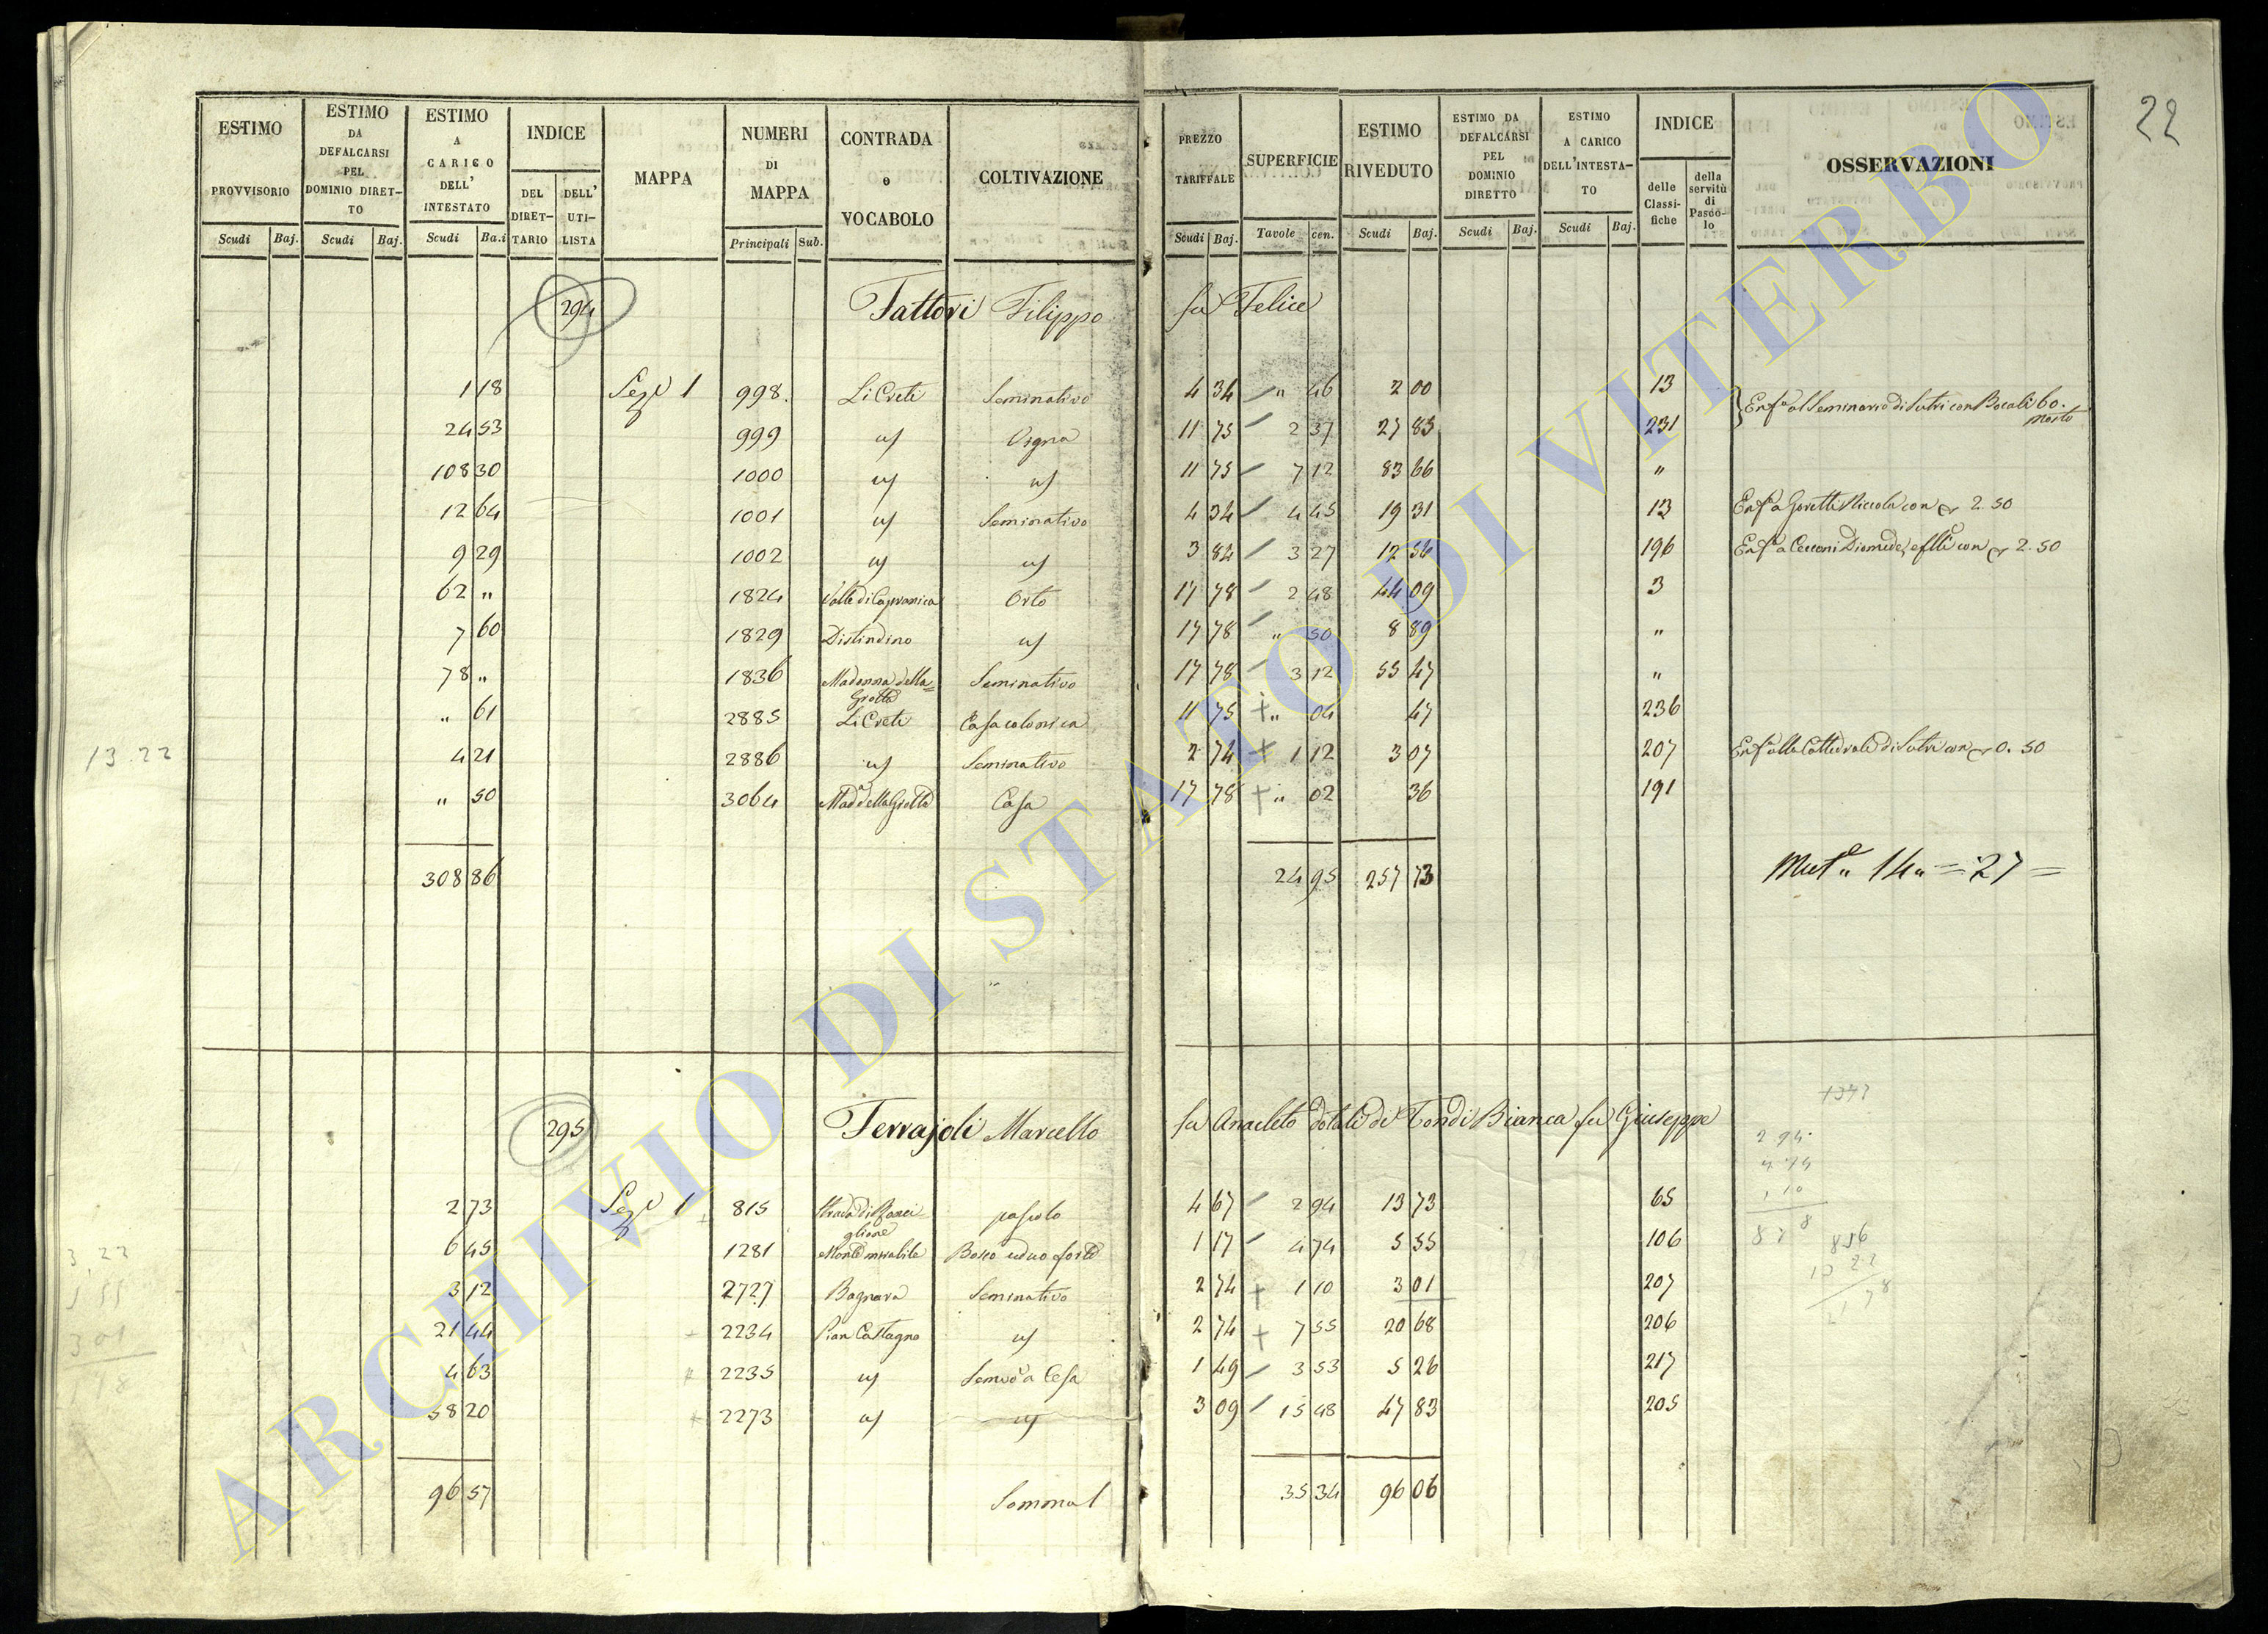 22
ESTIMO PROVVISORIO
ESTIMO DA DEFALCARSI PEL DOMINIO DIRETTO
ESTIMO A CARICO DELL' INTESTATO
INDICE
DEL DIRETTARIO
DELL' UTILISTA
MAPPA
NUMERI DI MAPPA
CONTRADA o VOCABOLO
COLTIVAZIONE
PREZZO TARIFFALE
SUPERFICIE
ESTIMO RIVEDUTO
ESTIMO DA DEFALCARSI PEL DOMINIO DIRETTO
ESTIMO A CARICO DELL'INTESTATO
INDICE
delle Classifiche
della servitù di Pascolo
OSSERVAZIONI
Scudi Baj. Scudi Baj. Scudi Ba.i Principali Sub. Scudi Baj. Tavole cen. Scudi Baj. Scudi Baj. Scudi Baj.
294 Fattori Filippo fu Felice
1 18 Seze 1 998. Li Creti Seminativo 4 34 " 46 2 00 13 Enfa al Seminario di Sutri con Bocali 60. Mosto
24 53 999 uj Vigna 11 75 2 37 27 83 231
108 30 1000 uj uj 11 75 7 12 83 66 "
12 64 1001 uj Seminativo 4 34 4 45 19 31 13 Enfa Goretti Niccola con 2.50
9 29 1002 uj uj 3 84 3 27 12 56 196 Enfa Cecconi Diomede, e flli con 2.50
62 " 1824 Valle di Capranica Orto 17 78 2 48 44 09 3
7 60 1829 Distindino uj 17 78 " 50 8 89 "
78 " 1836 Madonna della Grotta Seminativo 17 78 3 12 55 47 "
" 61 2885 Li Creti Casa colonica 11 75 " 04 47 236
13.22
4 21 2886 uj Seminativo 2 74 1 12 3 07 207 Enfa alla Cattedrale di Sutri con 0.50
" 50 3064 Mada della Grotta Casa 17 78 " 02 36 191
308 86 24 95 257 73 Mute " 14 " = 27 =
295 Ferrajoli Marcello fu Anacleto dotali di Tondi Bianca fu Giuseppe
1347
294
474
110
878
2 73 Seze 1 815 Strada di Ronciglione pascolo 4 67 2 94 13 73 65
6 45 1281 Monte mirabile Bosco ceduo forte 1 17 4 74 5 55 106
3 12 2727 Bagnara Seminativo 2 74 1 10 3 01 207
21 44 2234 Pian Castagno uj 2 74 7 55 20 68 206
4 63 2235 uj Semvo a Cesa 1 49 3 53 5 26 217
58 20 2273 uj uj 3 09 15 48 47 83 205
96 57 Somma 1 35 34 96 06
ARCHIVIO DI STATO DI VITERBO